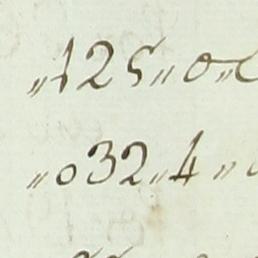 „125„0„
„032„4„